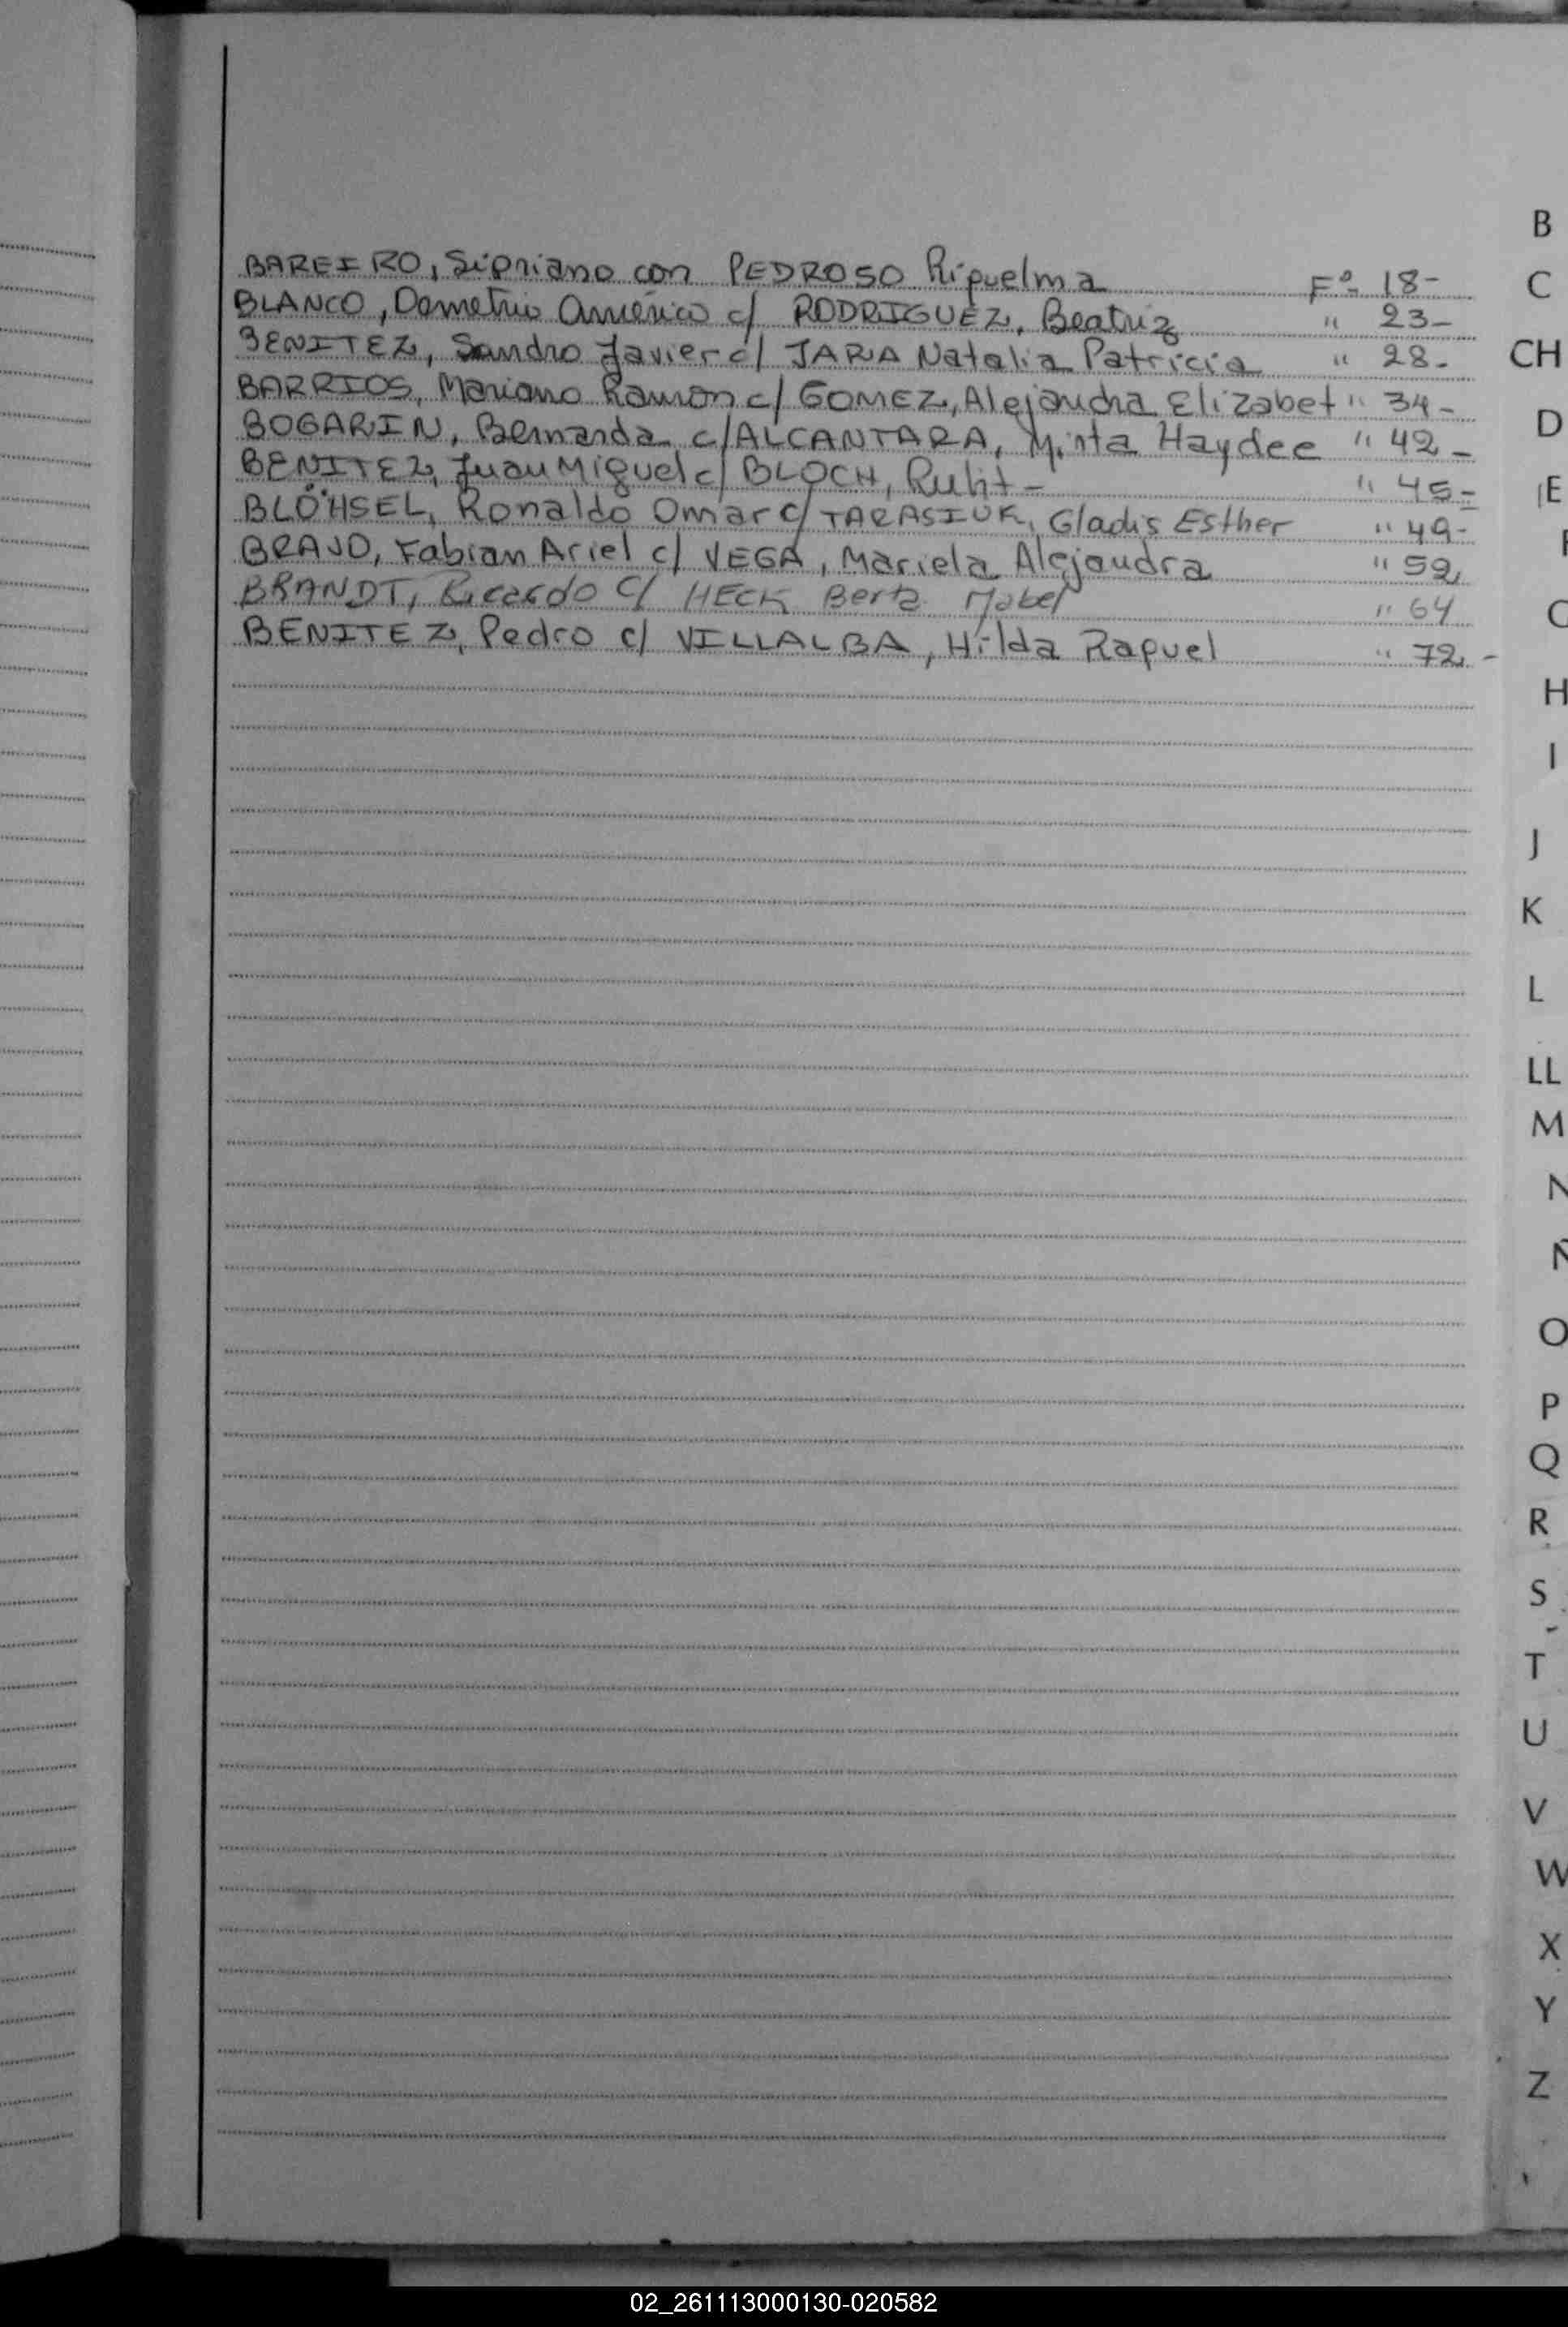 BAREIRO, Sipriano con PEDROSO Riquelma Fº 18-
BLANCO, Demetrio Américo c/ RODRIGUEZ, Beatriz " 23-
BENITEZ, Sandro Javier c/ JARA Natalia Patricia " 28-
BARRIOS, Mariano Ramon c/ GOMEZ, Alejandra Elizabet " 34-
BOGARIN, Bernarda c/ ALCANTARA, Mirta Haydee " 42-
BENITEZ, Juan Miguel c/ BLOCH, " 45-
BLÖHSEL, Ronaldo Omar c/ TARASIUK, Gladis Esther " 49-
BRAVO, Fabian Ariel c/ VEGA, Mariela Alejandra " 59
BRANDT, Ricardo c/ HECK Berta Mabel " 64
BENITEZ, Pedro c/ VILLALBA, Hilda Raquel " 72.-
B
C
CH
D
E
F
G
H
I
J
K
L
LL
M
N
Ñ
O
P
Q
R
S
T
U
V
W
X
Y
Z
02_261113000130-020582